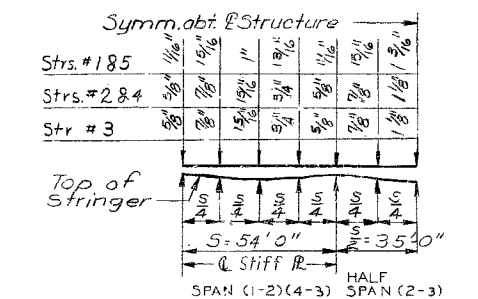 Symm. abt. ℄ Structure
Strs. #1&5 11/16" 15/16" 1" 13/16" 11/16" 15/16" 1 3/16"
Strs. #2&4 5/8" 7/8" 15/16" 3/4" 5/8" 7/8" 1 1/8"
Str #3 5/8" 7/8" 15/16" 3/4" 5/8" 7/8" 1 1/8"
Top of
Stringer
S/4 S/4 S/4 S/4 S/4 S/4
S=54'0" S/2=35'0"
℄ Stiff ℄
SPAN (1-2)(4-3)
HALF
SPAN (2-3)